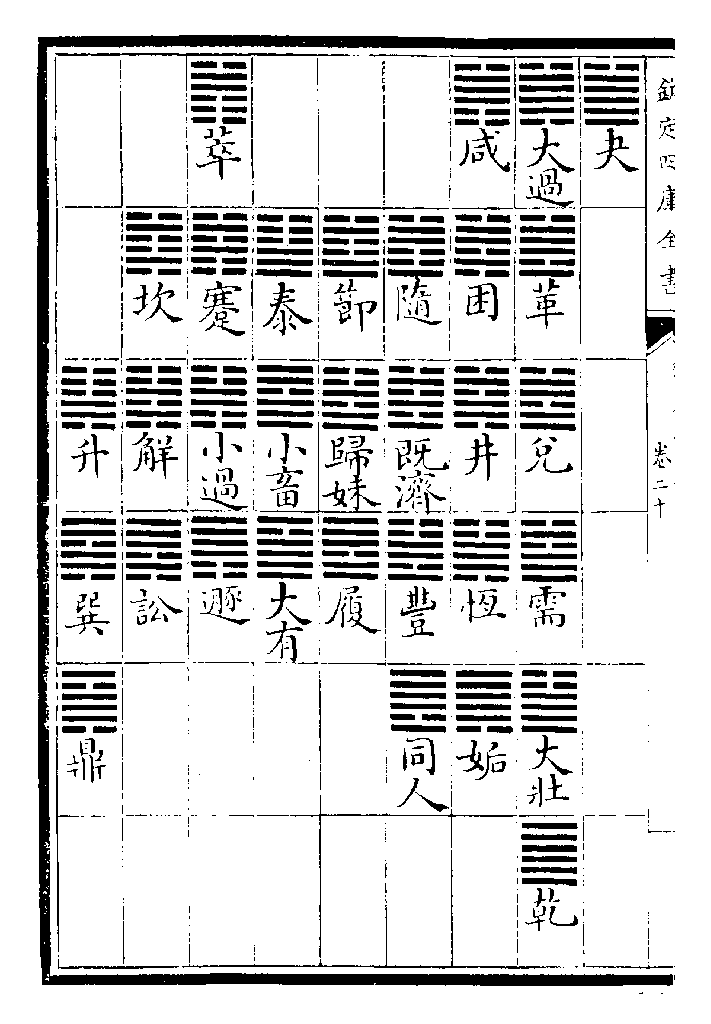 欽定四庫全書
卷二十
夬
大過 革 兌 需 大壯 乾
咸 困 井 恆 姤
隨 既濟 豐 同人
節 歸妹 履
泰 小畜 大有
萃 蹇 小過 遯
坎 解 訟
升 巽 鼎